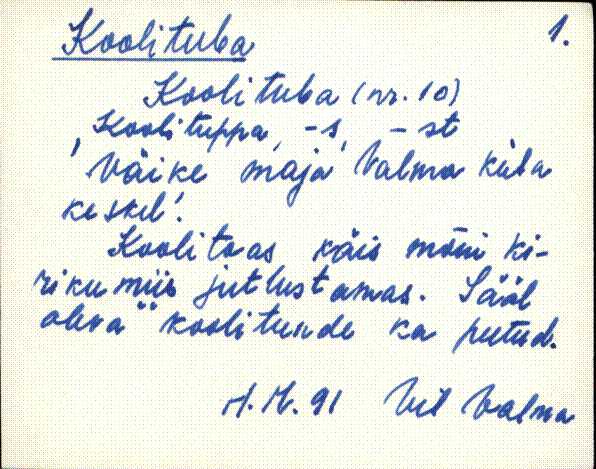 1.
Koolituba
Koolituba (nr. 10)
Koolituppa, -s, -st
'Väike maja Valma küla
keskel'.
Koolitoas käis mõni ki-
rikumiis jutlustamas. Sääl
oleva koolitunde ka peetud.
91 Vil Valma